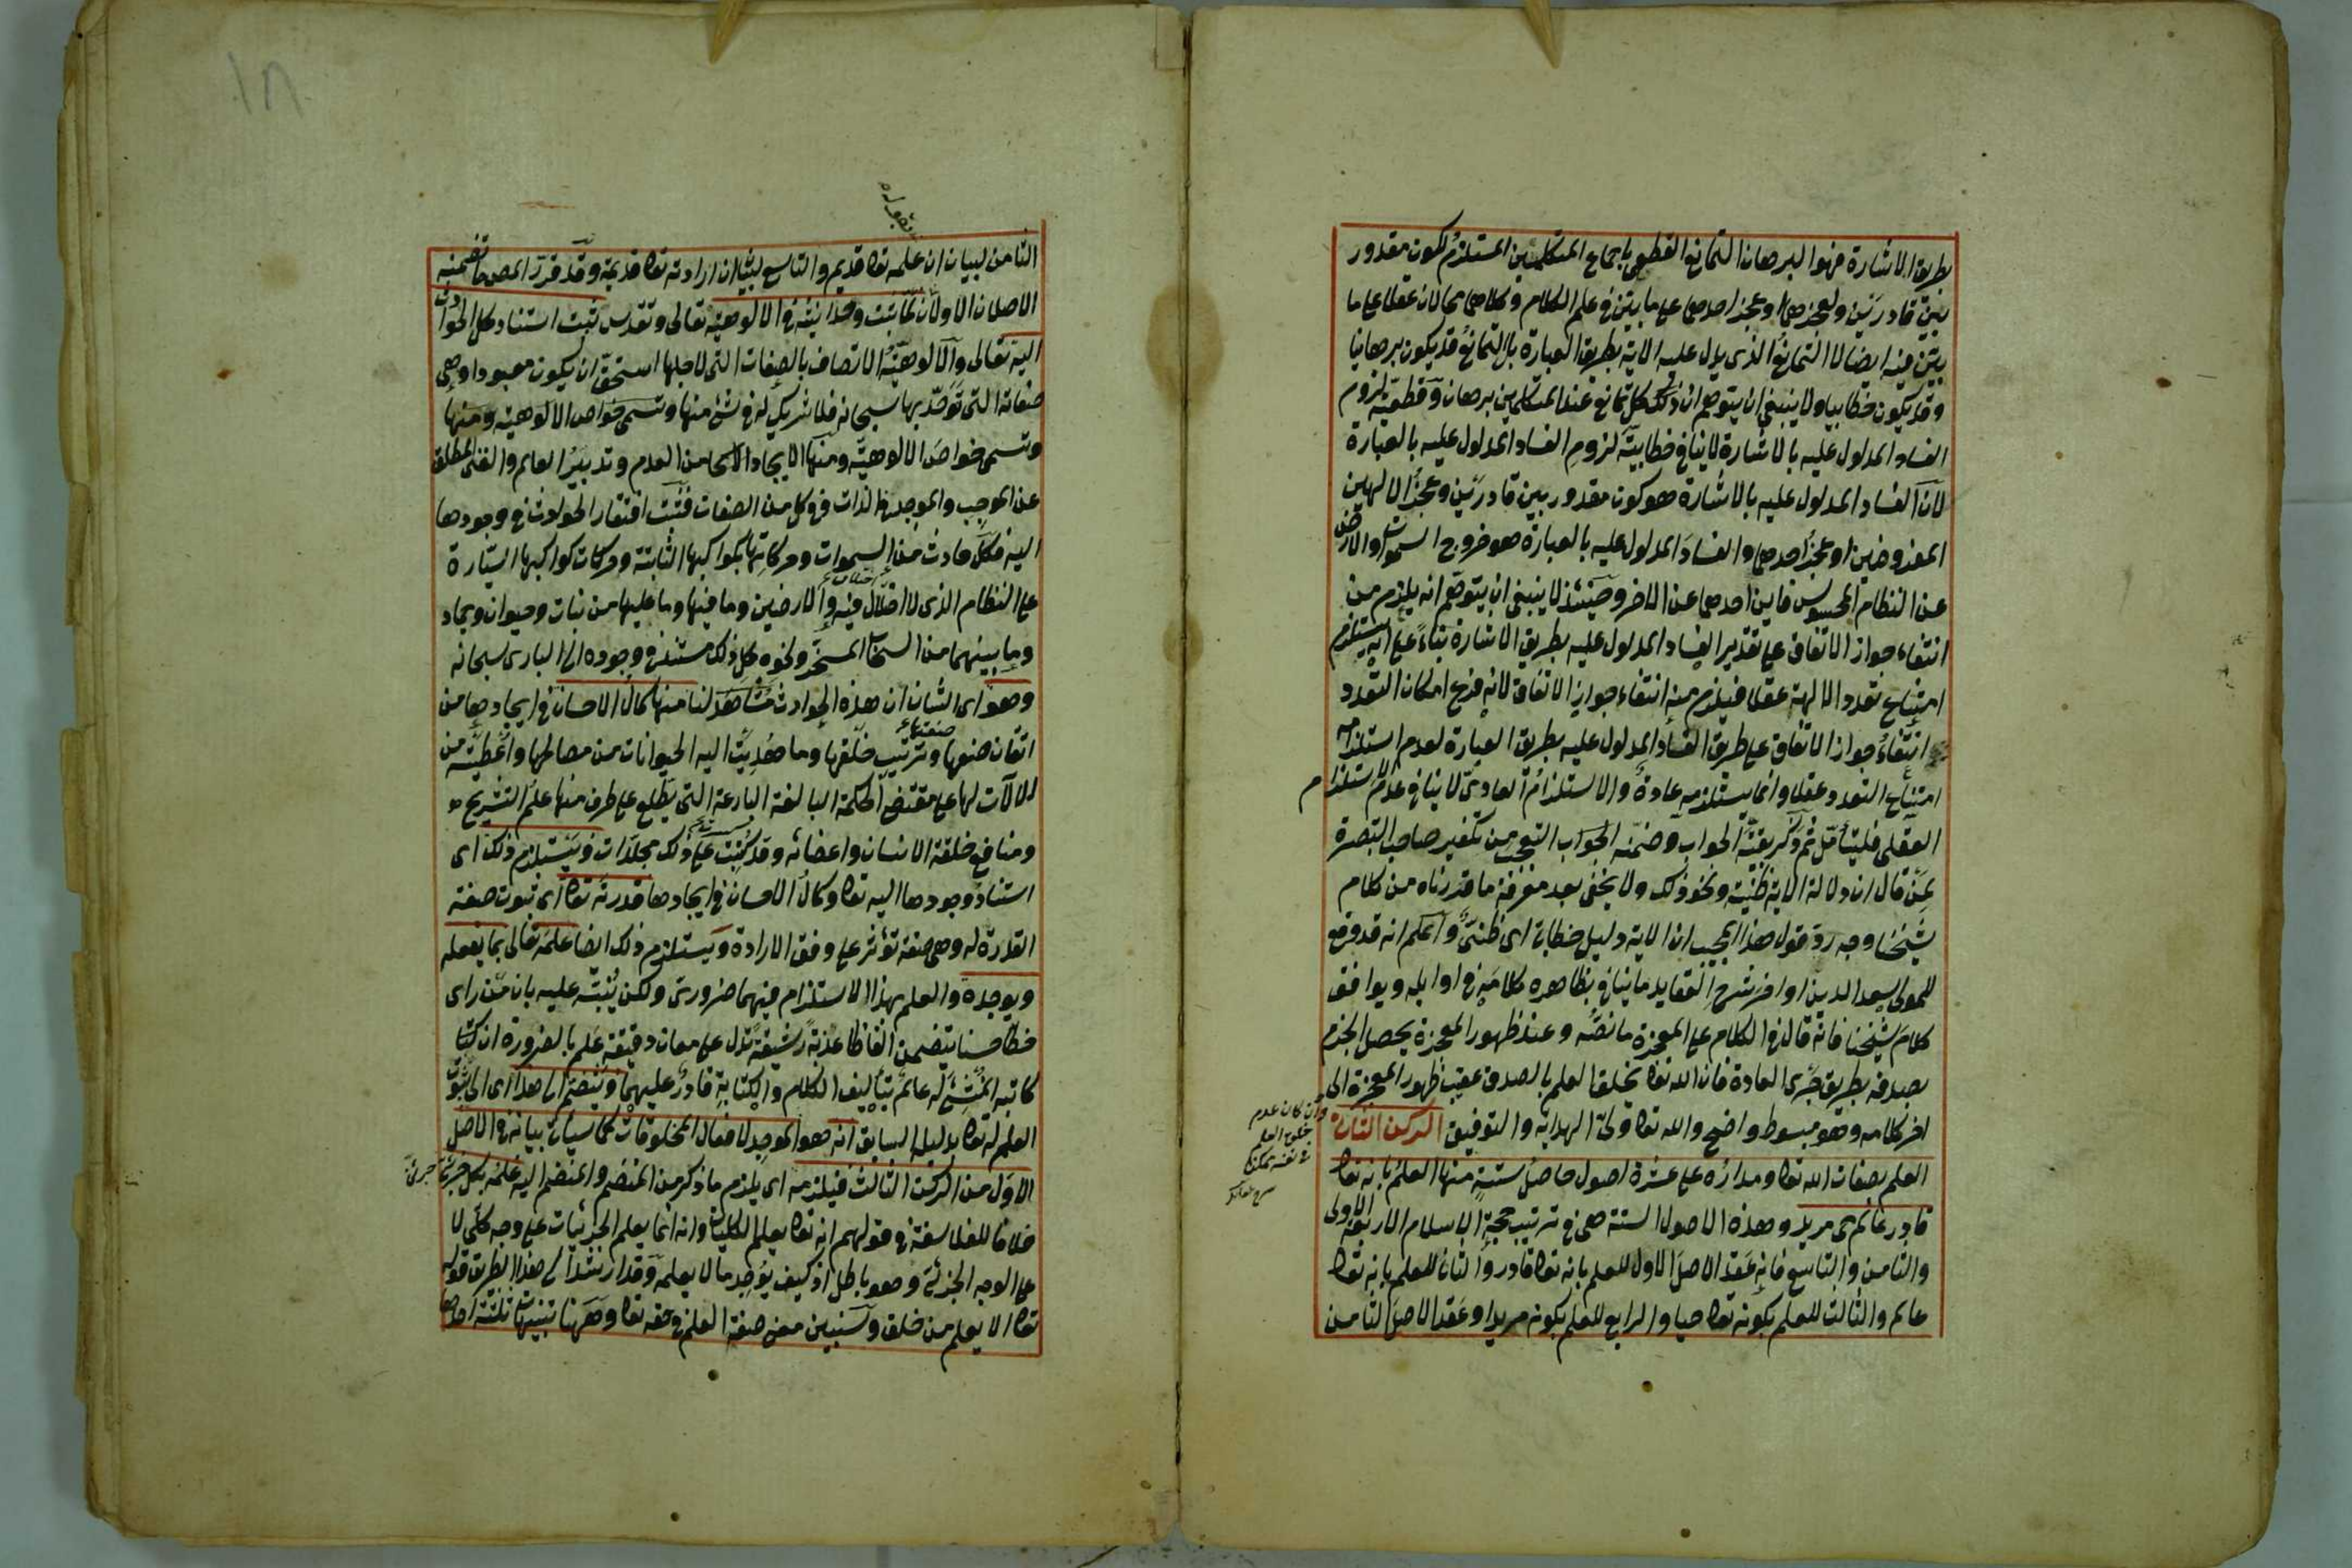 بطريق الاشارة فهو البرهان التمانع القطعي باجماع المتكلمين المستلزم لكون مقدور
بين قادرين ولعجزهما او عجز احدهما على ما بين في علم الكلام وكلاهما محالان عقلا على ما
بين فيه ايضا لا التمانع الذي يدل عليه الاية بطريق العبارة بل التمانع قد يكون برهانيا
وقد يكون خطابيا ولا ينبغي ان يتوهم ان كل تمانع عند المتكلمين برهان وقطعية لزوم
الفساد المدلول عليه بالاشارة لا ينافي خطابية لزوم الفساد المدلول عليه بالعبارة
لان الفساد المدلول عليه بالاشارة هو كون مقدور بين قادرين وعجز الالهين
المفروضين او عجز احدهما والفساد المدلول عليه بالعبارة هو خروج السموات والارض
عن النظام المحسوس فاين احدهما عن الاخر وحينئذ لا ينبغي ان يتوهم انه يلزم من
انتفاء جواز الاتفاق على تقدير الفساد المدلول عليه بطريق الاشارة بناء على انه يستلزم
امتناع تعدد الالهة عقلا فيلزم منه انتفاء جواز الاتفاق لانه فرع امكان التعدد
انتفاء جواز الاتفاق على طريق الفساد المدلول عليه بطريق العبارة لعدم استلزامه
امتناع التعدد عقلا وانما يستلزمه عادة والاستلزام العادي لا ينافي عدم الاستلزام
العقلي فليتأمل ثم ذكر بقية الجواب وضمنه الجواب التعجب من تكفير صاحب التبصرة
لمن قال ان دلالة الاية ظنية ونحو ذلك ولا يخفى بعد معرفة ما قررناه من كلام
شيخنا وجه رد قول هذا المجيب ان الاية دليل خطابي اي ظني واعلم انه قد وقع
للمولى سعد الدين اواخر شرح العقايد ما ينافي بظاهره كلامه في اوايله ويوافق
كلام شيخنا فانه قال في الكلام على المعجزة ما نصه وعند ظهور المعجزة يحصل الجزم
بصدقه بطريق جري العادة فان الله تعا يخلق العلم بالصدق عقيب ظهور المعجزة الى
اخر كلامه وهو مبسوط واضح والله تعا ولي الهداية والتوفيق الركن الثاني
العلم بصفات الله تعا ومداره على عشرة اصول حاصل ستة منها العلم بانه تعا
قادر عالم حي مريد وهذه الاصول الستة هي في ترتيب حجة الاسلام الاربعة الاولى
والثامن والتاسع فانه عقد الاصل الاول للعلم بانه تعا قادر والثاني للعلم بانه تعا
عالم والثالث للعلم بكونه تعا حيا والرابع للعلم بكونه مريدا وعقد الاصل الثامن
وان كان عدم
خلق العلم
في نفسه ممكنا
بقوله
الثامن لبيان ان علمه تعا قديم والتاسع لبيان ان ارادته تعا قديمة وقد قرر المص ما تضمنه
الاصلان الاولان لما ثبت وحدانيته في الالوهية تعالى وتقدس ثبت استناد كل الحوادث
اليه تعالى والالوهية الاتصاف بالصفات التي لاجلها استحق ان يكون معبودا وهي
صفاته التي توحد بها سبحانه فلا شريك له في شئ منها وتسمى خواص الالوهية ومنها
وتسمى خواص الالوهية ومنها الايجاد من العدم وتدبير العالم والغنى المطلق
عن الموجب والموجد في الذات في كل من الصفات فثبت افتقار الحوادث في وجودها
اليه فكل حادث من السموات وحركاتها بكواكبها الثابتة وحركات كواكبها السيارة
على النظام الذي لا اختلال فيه والارضين وما فيها وما عليها من نبات وحيوان وجماد
وما بينهما من السحاب المسخر ونحوه كل ذلك مستند في وجوده الى الباري سبحانه
وهو اى الشان ان هذه الحوادث مشاهد لنا منها كمال الاحسان في ايجادها من
اتقان صنعها وترتيب خلقها وما هديت اليه الحيوانات من مصالحها واعطيته من
الالات لها على مقتضى الحكمة البالغة البارعة التي يطلع على طرف منها علم التشريح
ومنافع خلقة الانسان واعضائه وقد كتبت على ذلك مجلدات ويستلزم ذلك اى
استناد وجودها اليه تعا وكمال الاحسان في ايجادها قدرته تعا اى ثبوت صفة
القدرة له وهي صفة تؤثر على وفق الارادة ويستلزم ذلك ايضا علمه تعالى بما يفعله
ويوجده والعلم بهذا الاستلزام فيهما ضروري ولكن ينبه عليه بان من راى
خطا حسنا يتضمن الفاظا عذبة رشيقة تدل على معان دقيقة علم بالضرورة ان
كاتبه المنشئ له عالم بتأليف الكلام والكتابة قادر عليهما وينضم الى هذا اى الى ثبوت
العلم له تعا بدليله السابق انه هو الموجد لافعال المخلوقات كما سياتي بيانه في الاصل
الاول من الركن الثالث فيلزمه اى يلزم ما ذكر من المنضم والمنضم اليه علمه بكل جزئي جزئي
خلافا للفلاسفة في قولهم انه تعا يعلم الكليات وانه انما يعلم الجزئيات على وجه كلي لا
على الوجه الجزئي وهو باطل اذ كيف يوجد ما لا يعلمه وقد ارشد الى هذا الطريق قوله
تعا الا يعلم من خلق وسنبين معنى صفة العلم في حقه تعا وههنا تنبيهات ثلثة احدها